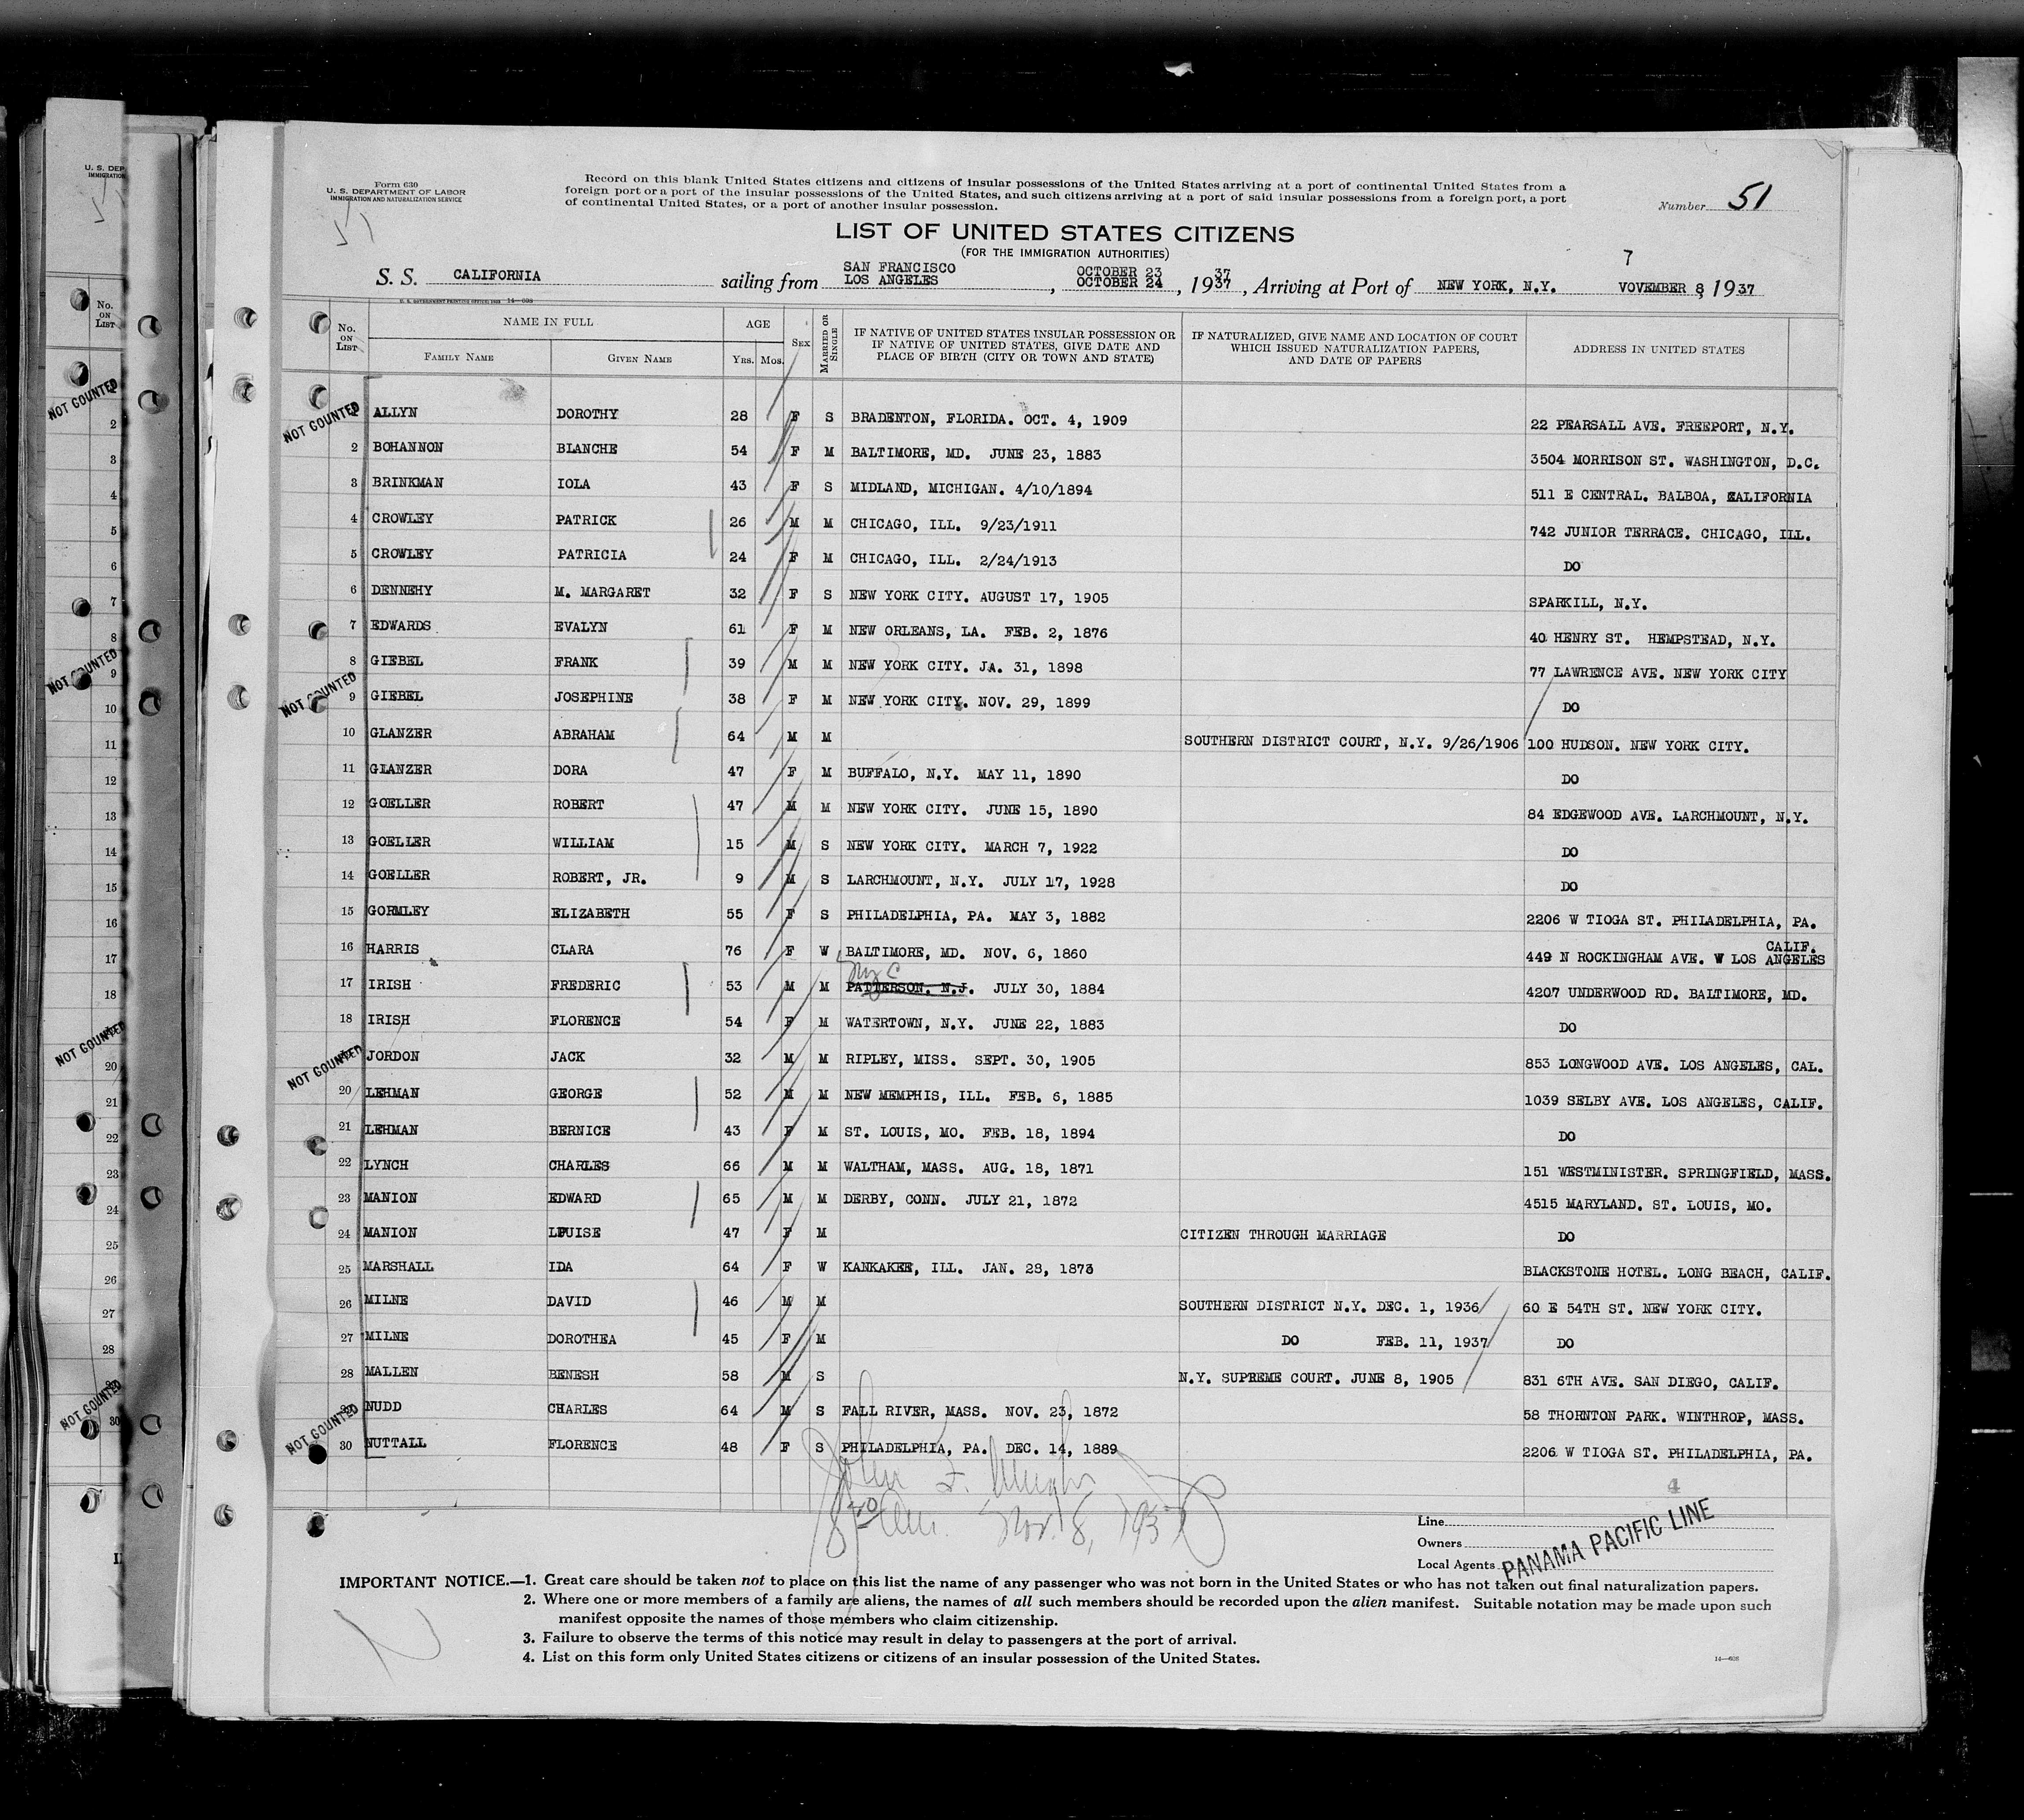 U. S. DEP
IMMIGRATION
Form 630
U. S. DEPARTMENT OF LABOR
IMMIGRATION AND NATURALIZATION SERVICE
Record on this blank United States citizens and citizens of insular possessions of the United States arriving at a port of continental United States from a
foreign port or a port of the insular possessions of the United States, and such citizens arriving at a port of said insular possessions from a foreign port, a port
of continental United States, or a port of another insular possession.
Number 51
LIST OF UNITED STATES CITIZENS
(FOR THE IMMIGRATION AUTHORITIES)
7
S. S. CALIFORNIA sailing from SAN FRANCISCO LOS ANGELES, OCTOBER 23 OCTOBER 24, 1937 37, Arriving at Port of NEW YORK, N.Y. VOVEMBER 8, 1937
U. S. GOVERNMENT PRINTING OFFICE: 14—608
No. ON LIST
NAME IN FULL
FAMILY NAME
GIVEN NAME
AGE
YRS. MOS.
SEX
MARRIED OR SINGLE
IF NATIVE OF UNITED STATES INSULAR POSSESSION OR
IF NATIVE OF UNITED STATES, GIVE DATE AND
PLACE OF BIRTH (CITY OR TOWN AND STATE)
IF NATURALIZED, GIVE NAME AND LOCATION OF COURT
WHICH ISSUED NATURALIZATION PAPERS,
AND DATE OF PAPERS
ADDRESS IN UNITED STATES
NOT COUNTED
ALLYN DOROTHY 28 F S BRADENTON, FLORIDA. OCT. 4, 1909 22 PEARSALL AVE. FREEPORT, N.Y.
2 BOHANNON BLANCHE 54 F M BALTIMORE, MD. JUNE 23, 1883 3504 MORRISON ST. WASHINGTON, D.C.
3 BRINKMAN IOLA 43 F S MIDLAND, MICHIGAN. 4/10/1894 511 E CENTRAL. BALBOA, CALIFORNIA
4 CROWLEY PATRICK 26 M M CHICAGO, ILL. 9/23/1911 742 JUNIOR TERRACE. CHICAGO, ILL.
5 CROWLEY PATRICIA 24 F M CHICAGO, ILL. 2/24/1913 DO
6 DENNEHY M. MARGARET 32 F S NEW YORK CITY. AUGUST 17, 1905 SPARKILL, N.Y.
7 EDWARDS EVALYN 61 F M NEW ORLEANS, LA. FEB. 2, 1876 40 HENRY ST. HEMPSTEAD, N.Y.
8 GIEBEL FRANK 39 M M NEW YORK CITY. JA. 31, 1898 77 LAWRENCE AVE. NEW YORK CITY
NOT COUNTED
9 GIEBEL JOSEPHINE 38 F M NEW YORK CITY. NOV. 29, 1899 DO
10 GLANZER ABRAHAM 64 M M SOUTHERN DISTRICT COURT, N.Y. 9/26/1906 100 HUDSON. NEW YORK CITY.
11 GLANZER DORA 47 F M BUFFALO, N.Y. MAY 11, 1890 DO
12 GOELLER ROBERT 47 M M NEW YORK CITY. JUNE 15, 1890 84 EDGEWOOD AVE. LARCHMOUNT, N.Y.
13 GOELLER WILLIAM 15 M S NEW YORK CITY. MARCH 7, 1922 DO
14 GOELLER ROBERT, JR. 9 M S LARCHMOUNT, N.Y. JULY 17, 1928 DO
15 GORMLEY ELIZABETH 55 F S PHILADELPHIA, PA. MAY 3, 1882 2206 W TIOGA ST. PHILADELPHIA, PA.
16 HARRIS CLARA 76 F W BALTIMORE, MD. NOV. 6, 1860 449 N ROCKINGHAM AVE. W LOS ANGELES CALIF.
N.Y.C
17 IRISH FREDERIC 53 M M PATTERSON. N.J. JULY 30, 1884 4207 UNDERWOOD RD. BALTIMORE, MD.
18 IRISH FLORENCE 54 F M WATERTOWN, N.Y. JUNE 22, 1883 DO
NOT COUNTED
JORDON JACK 32 M M RIPLEY, MISS. SEPT. 30, 1905 853 LONGWOOD AVE. LOS ANGELES, CAL.
20 LEHMAN GEORGE 52 M M NEW MEMPHIS, ILL. FEB. 6, 1885 1039 SELBY AVE. LOS ANGELES, CALIF.
21 LEHMAN BERNICE 43 F M ST. LOUIS, MO. FEB. 18, 1894 DO
22 LYNCH CHARLES 66 M M WALTHAM, MASS. AUG. 18, 1871 151 WESTMINISTER. SPRINGFIELD, MASS.
23 MANION EDWARD 65 M M DERBY, CONN. JULY 21, 1872 4515 MARYLAND. ST. LOUIS, MO.
24 MANION LOUISE 47 F M CITIZEN THROUGH MARRIAGE DO
25 MARSHALL IDA 64 F W KANKAKEE, ILL. JAN. 28, 1873 BLACKSTONE HOTEL. LONG BEACH, CALIF.
26 MILNE DAVID 46 M M SOUTHERN DISTRICT N.Y. DEC. 1, 1936 60 E 54TH ST. NEW YORK CITY.
27 MILNE DOROTHEA 45 F M DO FEB. 11, 1937 DO
28 MALLEN BENESH 58 M S N.Y. SUPREME COURT. JUNE 8, 1905 831 6TH AVE. SAN DIEGO, CALIF.
NOT COUNTED
NUDD CHARLES 64 M S FALL RIVER, MASS. NOV. 23, 1872 58 THORNTON PARK. WINTHROP, MASS.
30 NUTTALL FLORENCE 48 F S PHILADELPHIA, PA. DEC. 14, 1889 2206 W TIOGA ST. PHILADELPHIA, PA.
4
John F.
Nov. 8, 1937
Line
Owners
Local Agents
PANAMA PACIFIC LINE
IMPORTANT NOTICE.—1. Great care should be taken not to place on this list the name of any passenger who was not born in the United States or who has not taken out final naturalization papers.
2. Where one or more members of a family are aliens, the names of all such members should be recorded upon the alien manifest. Suitable notation may be made upon such
manifest opposite the names of those members who claim citizenship.
3. Failure to observe the terms of this notice may result in delay to passengers at the port of arrival.
4. List on this form only United States citizens or citizens of an insular possession of the United States.
14—608